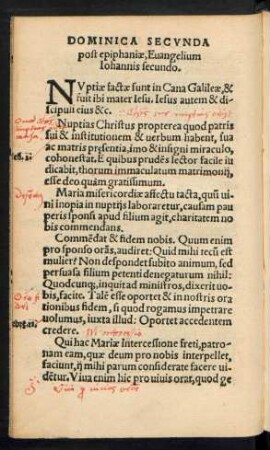 DOMINICA SECVNDA
post epiphaniæ, Euangelium
Iohannis secundo.
NVptiæ factæ sunt in Cana Galileæ, &
fuit ibi mater Iesu. Iesus autem & di
scipuli eius &c.
Nuptias Christus propterea quod patris
sui & institutionem & uerbum habent, sua
ac matris presentia, imo & insigni miraculo,
cohonestat. E quibus prudẽs lector facile iu
dicabit, thorum immaculatum matrimonij,
esse deo quàm gratissimum.
Maria misericordiæ affectu tacta, quũ ui
ni inopia in nuptijs laboraretur, causam pau
peris sponsi apud filium agit, charitatem no
bis commendans.
Commẽdat & fidem nobis. Quum enim
pro sponso orãs, audiret: Quid mihi tecũ est
mulier? Non despondet subito animum, sed
persuasa filium petenti denegaturum nihil:
Quodcunq;, inquit ad ministros, dixerit uo
bis, facite. Talẽ esse oportet & in nostris ora
tionibus fidem, si quod rogamus impetrare
uolumus, iuxta illud: Oportet accedentem
credere.
Qui hac Mariæ Intercessione freti, patro-
nam eam, quæ deum pro nobis interpellet,
faciunt, ij mihi parum considerate facere ui
dẽtur. Viua enim hic pro uiuis orat, quod ge